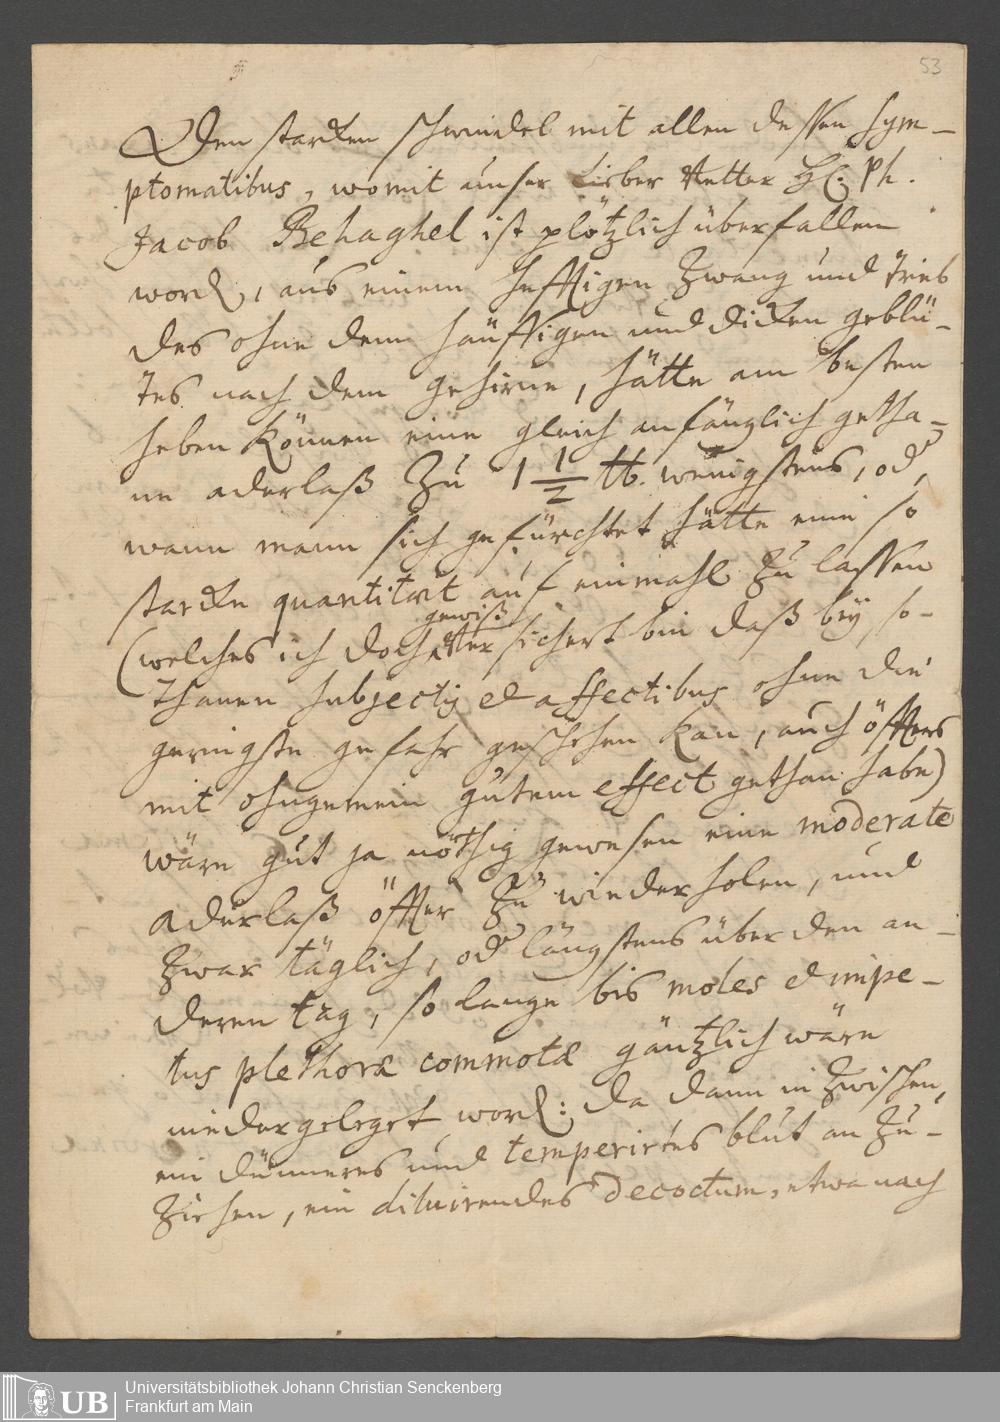 53
Den starcken schwindel mit allen dessen Sym-
ptomatibus, womit unser Lieber Vetter H. Ph.
Jacob Behaghel ist plötzlich überfallen
word, aus einem hefftigen Zwang und Trieb
des ohne dem häuffigen und dicken geblü-
tes nach dem gehirne, hätte am besten
heben können eine gleich anfänglich getha-
ne aderlaß Zu 1 1/2 ℔. wenigstens, od,
wann mann sich gefürchtet hätte eine so
starcke quantitaet auf einmahl Zu lassen
(welches ich doch gewiß versichert bin daß bey so-
thanen subjectis et affectibus ohne die
geringste gefahr geschehen kan, auch öffters
mit ohngemein gutem effect gethan habe)
wäre gut ja nöthig gewesen eine moderate
aderlaß öffter Zu wiederholen, und
Zwar täglich, od längstens über den an-
deren tag, so lange bis moles et impe-
tus plethoræ commotæ gäntzlich wäre
niedergeleget word: da dann inZwischen,
ein dünneres und temperirtes blut an Zu-
Ziehen, ein diluirendes Decoctum, etwa nach
UB
Universitätsbibliothek Johann Christian Senckenberg
Frankfurt am Main